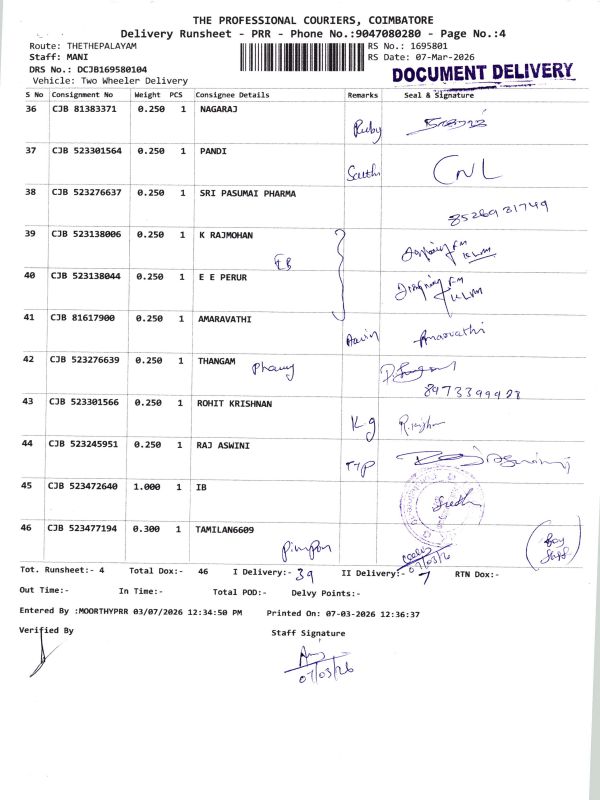 THE PROFESSIONAL COURIERS, COIMBATORE
Delivery Runsheet - PRR - Phone No.:9047080280 - Page No.:4
Route: THETHEPALAYAM
RS No.: 1695801
Staff: MANI
RS Date: 07-Mar-2026
DRS No.: DCJB169580104
Vehicle: Two Wheeler Delivery
DOCUMENT DELIVERY
S No Consignment No Weight PCS Consignee Details Remarks Seal & Signature
36 CJB 81383371 0.250 1 NAGARAJ
Ruby
37 CJB 523301564 0.250 1 PANDI
CNL
38 CJB 523276637 0.250 1 SRI PASUMAI PHARMA
8526931749
39 CJB 523138006 0.250 1 K RAJMOHAN
EB
40 CJB 523138044 0.250 1 E E PERUR
41 CJB 81617900 0.250 1 AMARAVATHI
Amaravathi
42 CJB 523276639 0.250 1 THANGAM
43 CJB 523301566 0.250 1 ROHIT KRISHNAN
Kg
44 CJB 523245951 0.250 1 RAJ ASWINI
45 CJB 523472640 1.000 1 IB
46 CJB 523477194 0.300 1 TAMILAN6609
07/03/26
Tot. Runsheet:- 4 Total Dox:- 46 I Delivery:- 39 II Delivery:- 7 RTN Dox:-
Out Time:- In Time:- Total POD:- Delvy Points:-
Entered By :MOORTHYPRR 03/07/2026 12:34:50 PM Printed On: 07-03-2026 12:36:37
Verified By
Staff Signature
07/03/26